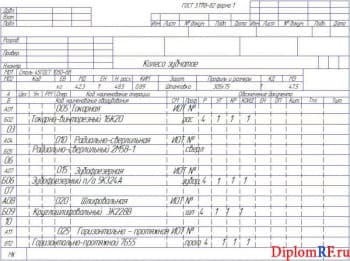 ГОСТ 3.1118-82 форма 1
Дубл.
Взам.
Подп.
Изм. Лист № докум. Изм. Лист № докум.
Разраб.
Н.контр.
Колесо зубчатое
М01 Сталь 45 ГОСТ 1050-88
Код ЕВ МД ЕН Н. расх КИМ Загот. Профиль и размеры КД МЗ
М02 кг 4.2.3 1 4.83 0.89 Штамповка 305х75 1 4.7.3
А Цех Уч. РМ Опер. Код, наименование операции Обозначение документа
Б Код, наименование оборудования СМ Проф. Р УТ КР КОИД ЕН ОП Кшт. Тпз. Тшт.
А01 005 Токарная ИОТ №
Б02 Токарно-винторезный 16К20 рас 4 1 1 1
03
А04 010 Радиально-сверлильная ИОТ №
Б05 Радиально-сверлильный 2М58-1 сверл
06
А07 015 Зубофрезерная ИОТ №
Б06 Зубофрезерный п/а 5К324А зубор 4 1 1 1
07
А08 020 Шлифовальная ИОТ №
Б09 Круглошлифовальный 3К228В шл 4 1 1 1
10
А11 025 Горизонтально - протяжная ИОТ №
Б12 Горизонтально-протяжной 7Б55 прот 4 1 1 1
МК
DiplomRF.ru